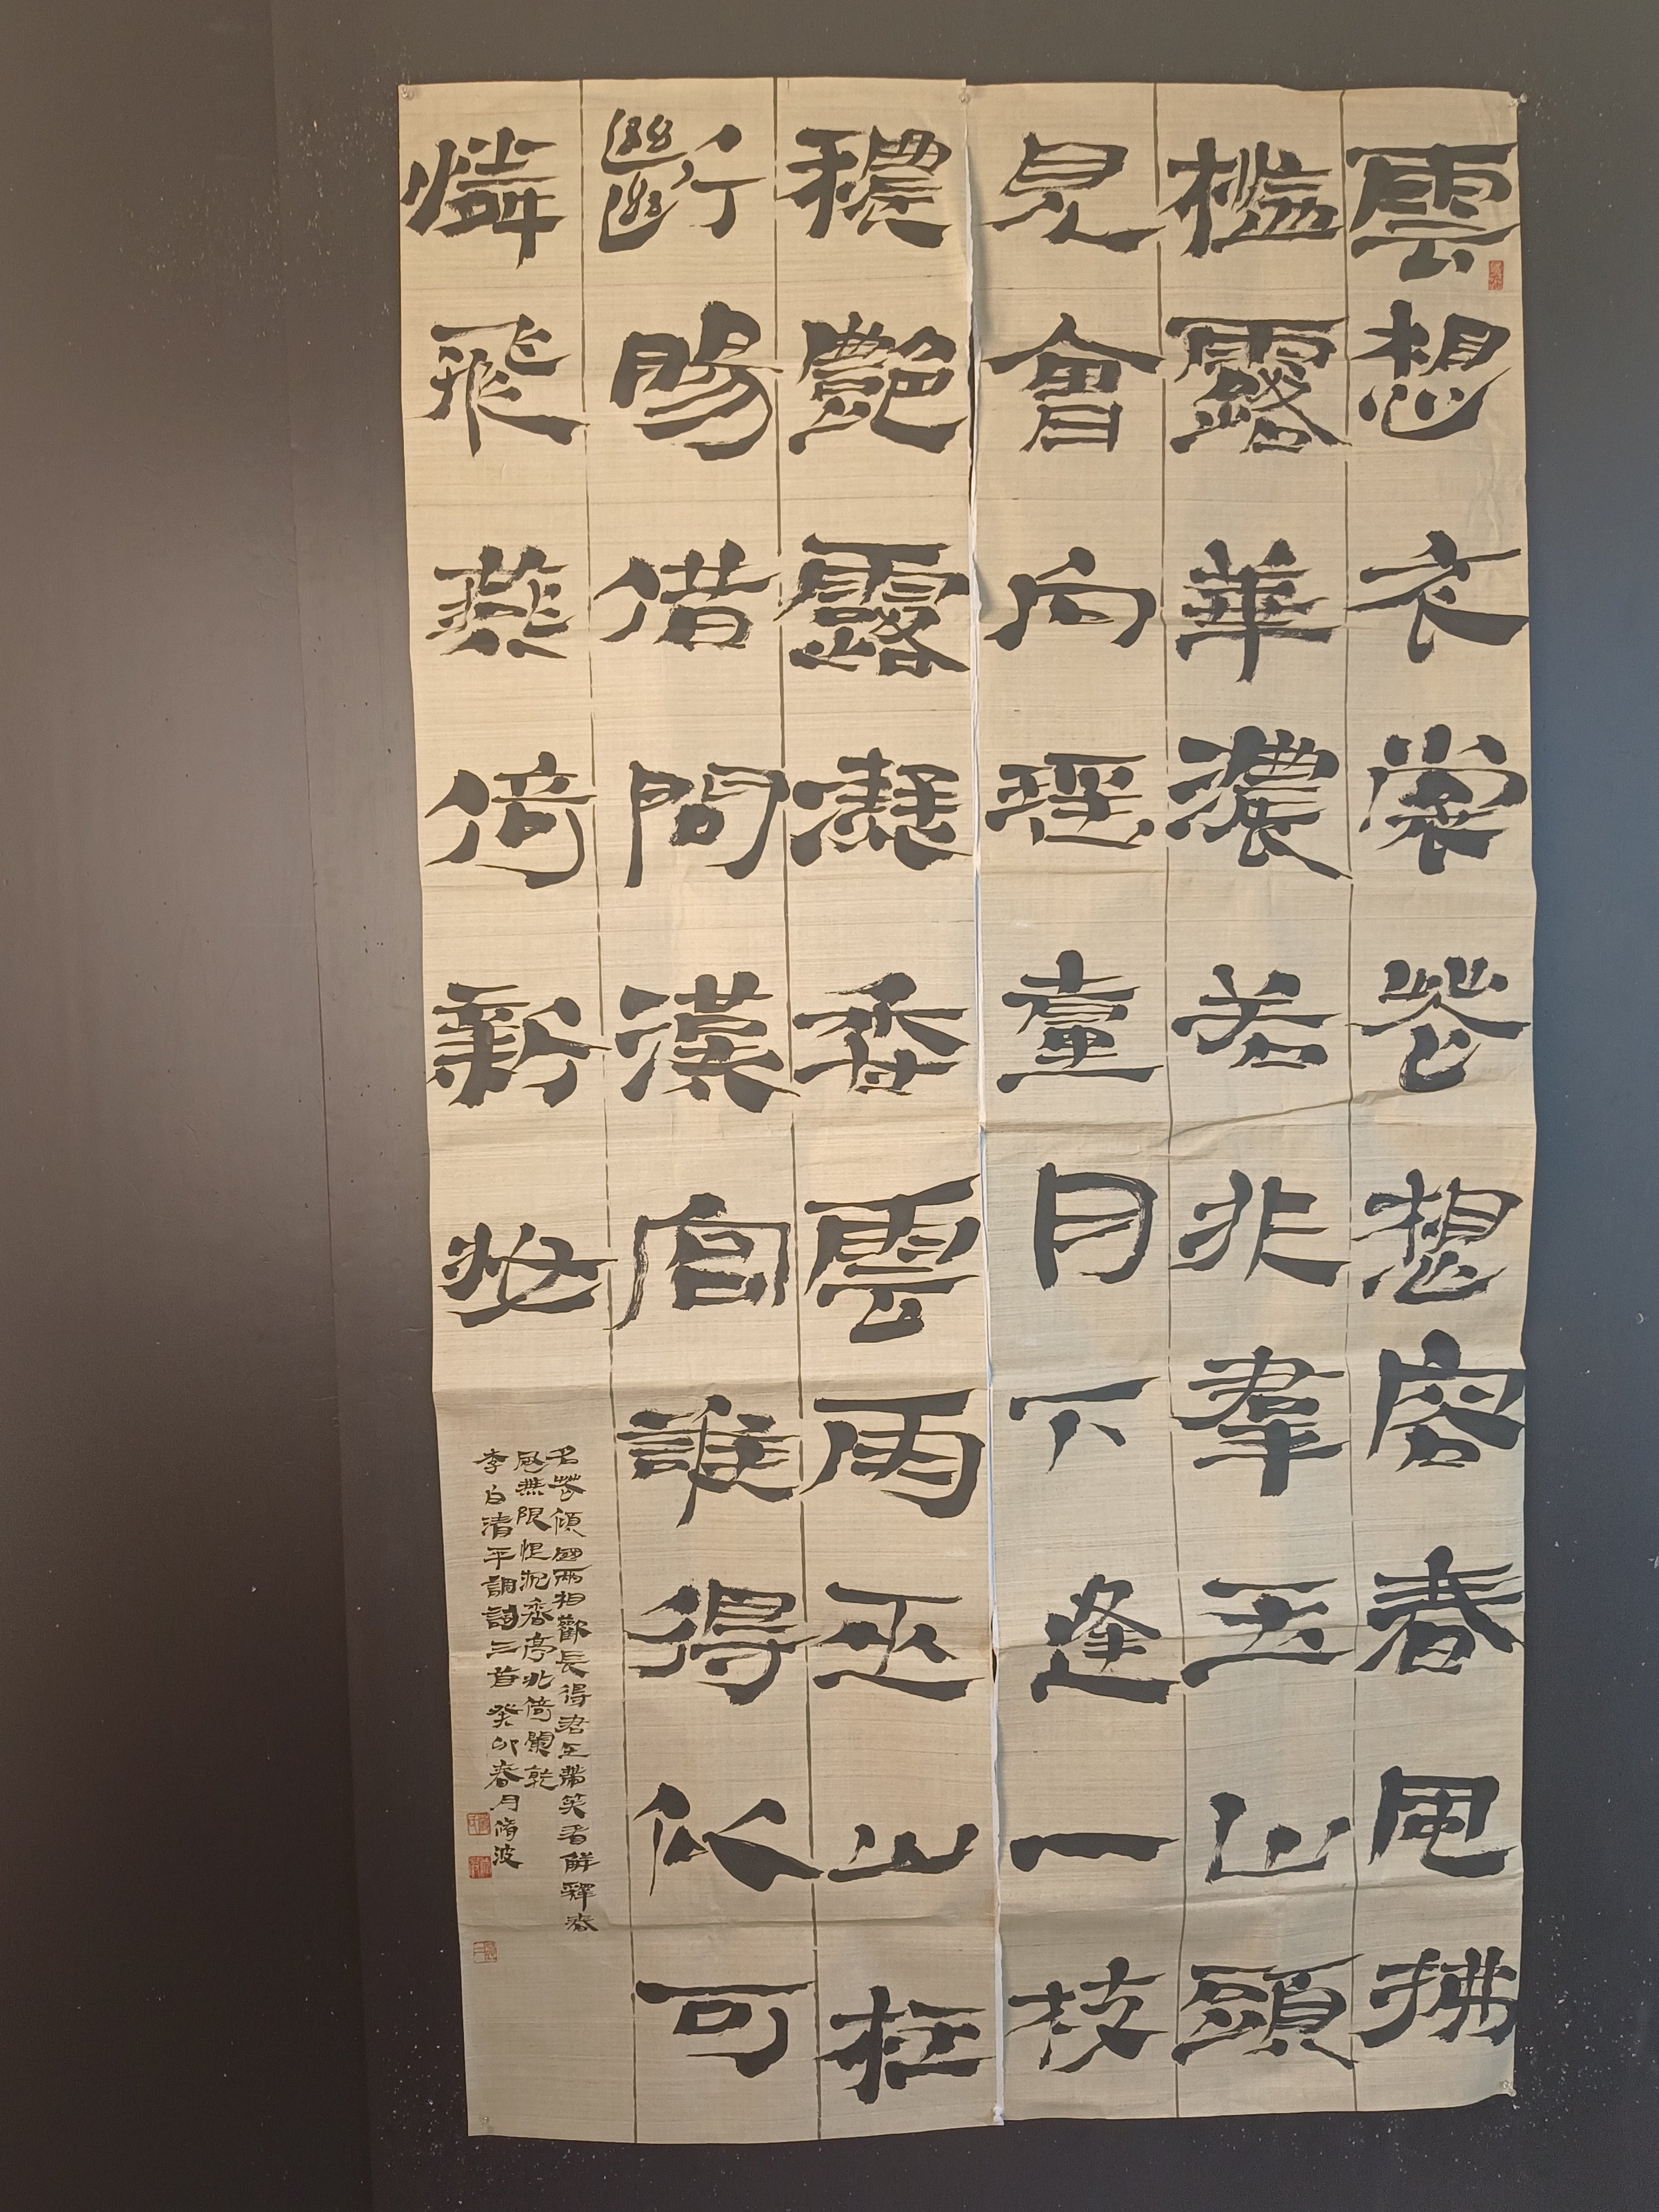 雲想衣裳花想容春風拂
檻露華濃若非羣玉山頭
見會向瑤臺月下逢一枝
穠艷露凝香雲雨巫山枉
斷腸借問漢宮誰得似可
憐飛燕倚新妝
名花傾國兩相歡長得君王帶笑看解釋春
風無限恨沉香亭北倚闌乾
李白清平調詞三首癸卯春月脩波